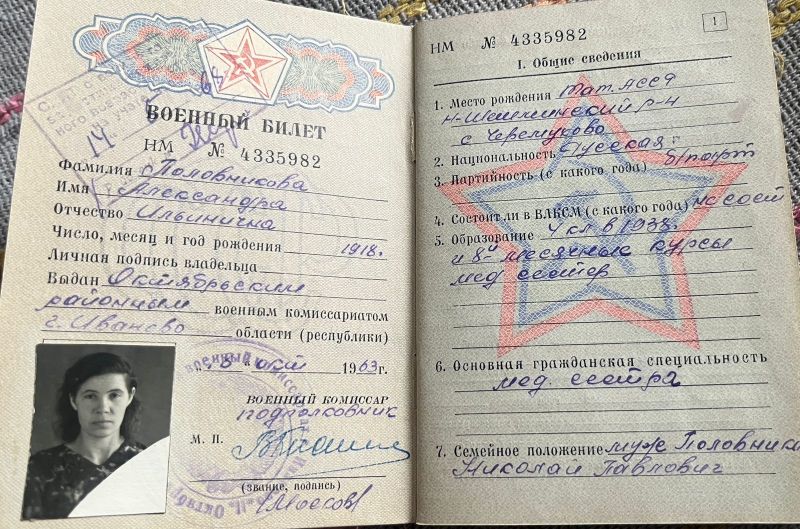 ВОЕННЫЙ БИЛЕТ
НМ № 4335982
Фамилия Половникова
Имя Александра
Отчество Ильинична
Число, месяц и год рождения 1918.
Личная подпись владельца
Выдан Октябрьским
районным военным комиссариатом
г. Иваново области (республики)
окт 1963 г.
ВОЕННЫЙ КОМИССАР
подполковник
М. П.
(звание, подпись)
НМ № 4335982
1
I. Общие сведения
1. Место рождения Тат. АССР
р-н
с
2. Национальность Русская
3. Партийность (с какого года) б/парт
4. Состоит ли в ВЛКСМ (с какого года) не сост
5. Образование 4 кл в 1933г
и 8и месячные курсы
мед сестер
6. Основная гражданская специальность
мед. сестра
7. Семейное положение муж
Николай Павлович